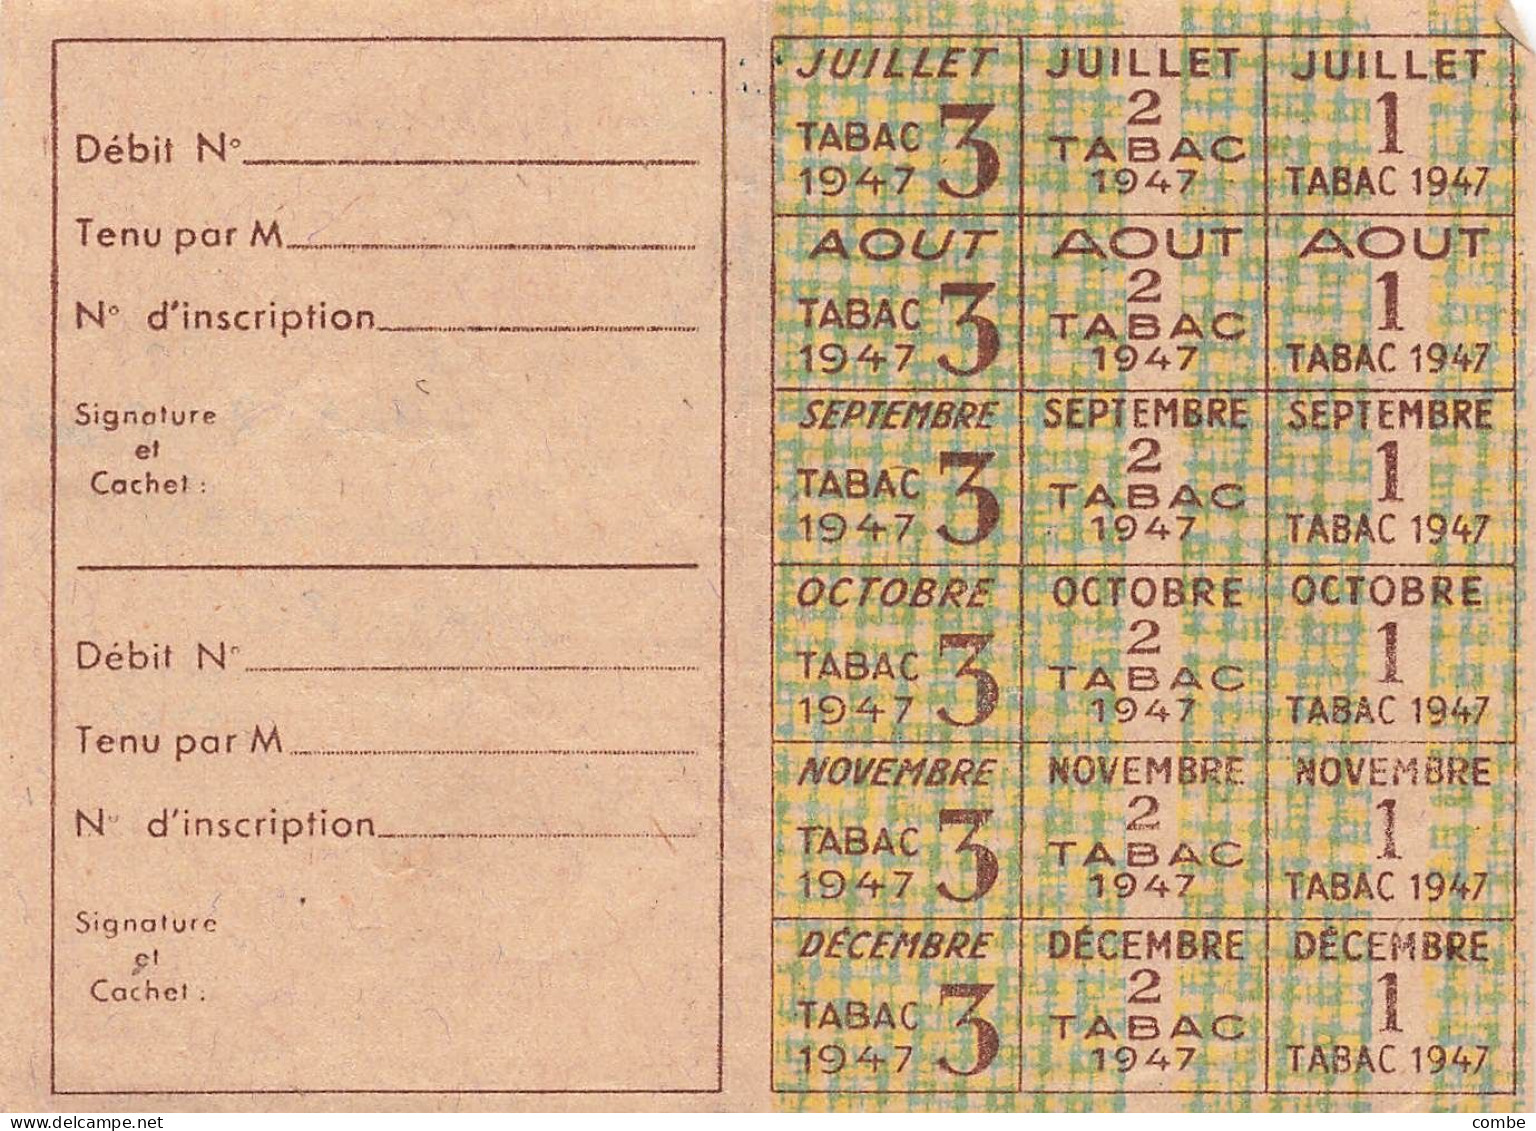 Débit N°
Tenu par M
N° d'inscription
Signature
et
Cachet :
Débit N°
Tenu par M
N° d'inscription
Signature
et
Cachet :
JUILLET
TABAC 3
1947
JUILLET
2
TABAC
1947
JUILLET
1
TABAC 1947
AOUT
TABAC 3
1947
AOUT
2
TABAC
1947
AOUT
1
TABAC 1947
SEPTEMBRE
TABAC 3
1947
SEPTEMBRE
2
TABAC
1947
SEPTEMBRE
1
TABAC 1947
OCTOBRE
TABAC 3
1947
OCTOBRE
2
TABAC
1947
OCTOBRE
1
TABAC 1947
NOVEMBRE
TABAC 3
1947
NOVEMBRE
2
TABAC
1947
NOVEMBRE
1
TABAC 1947
DÉCEMBRE
TABAC 3
1947
DÉCEMBRE
2
TABAC
1947
DÉCEMBRE
1
TABAC 1947
delcampe.net
combe